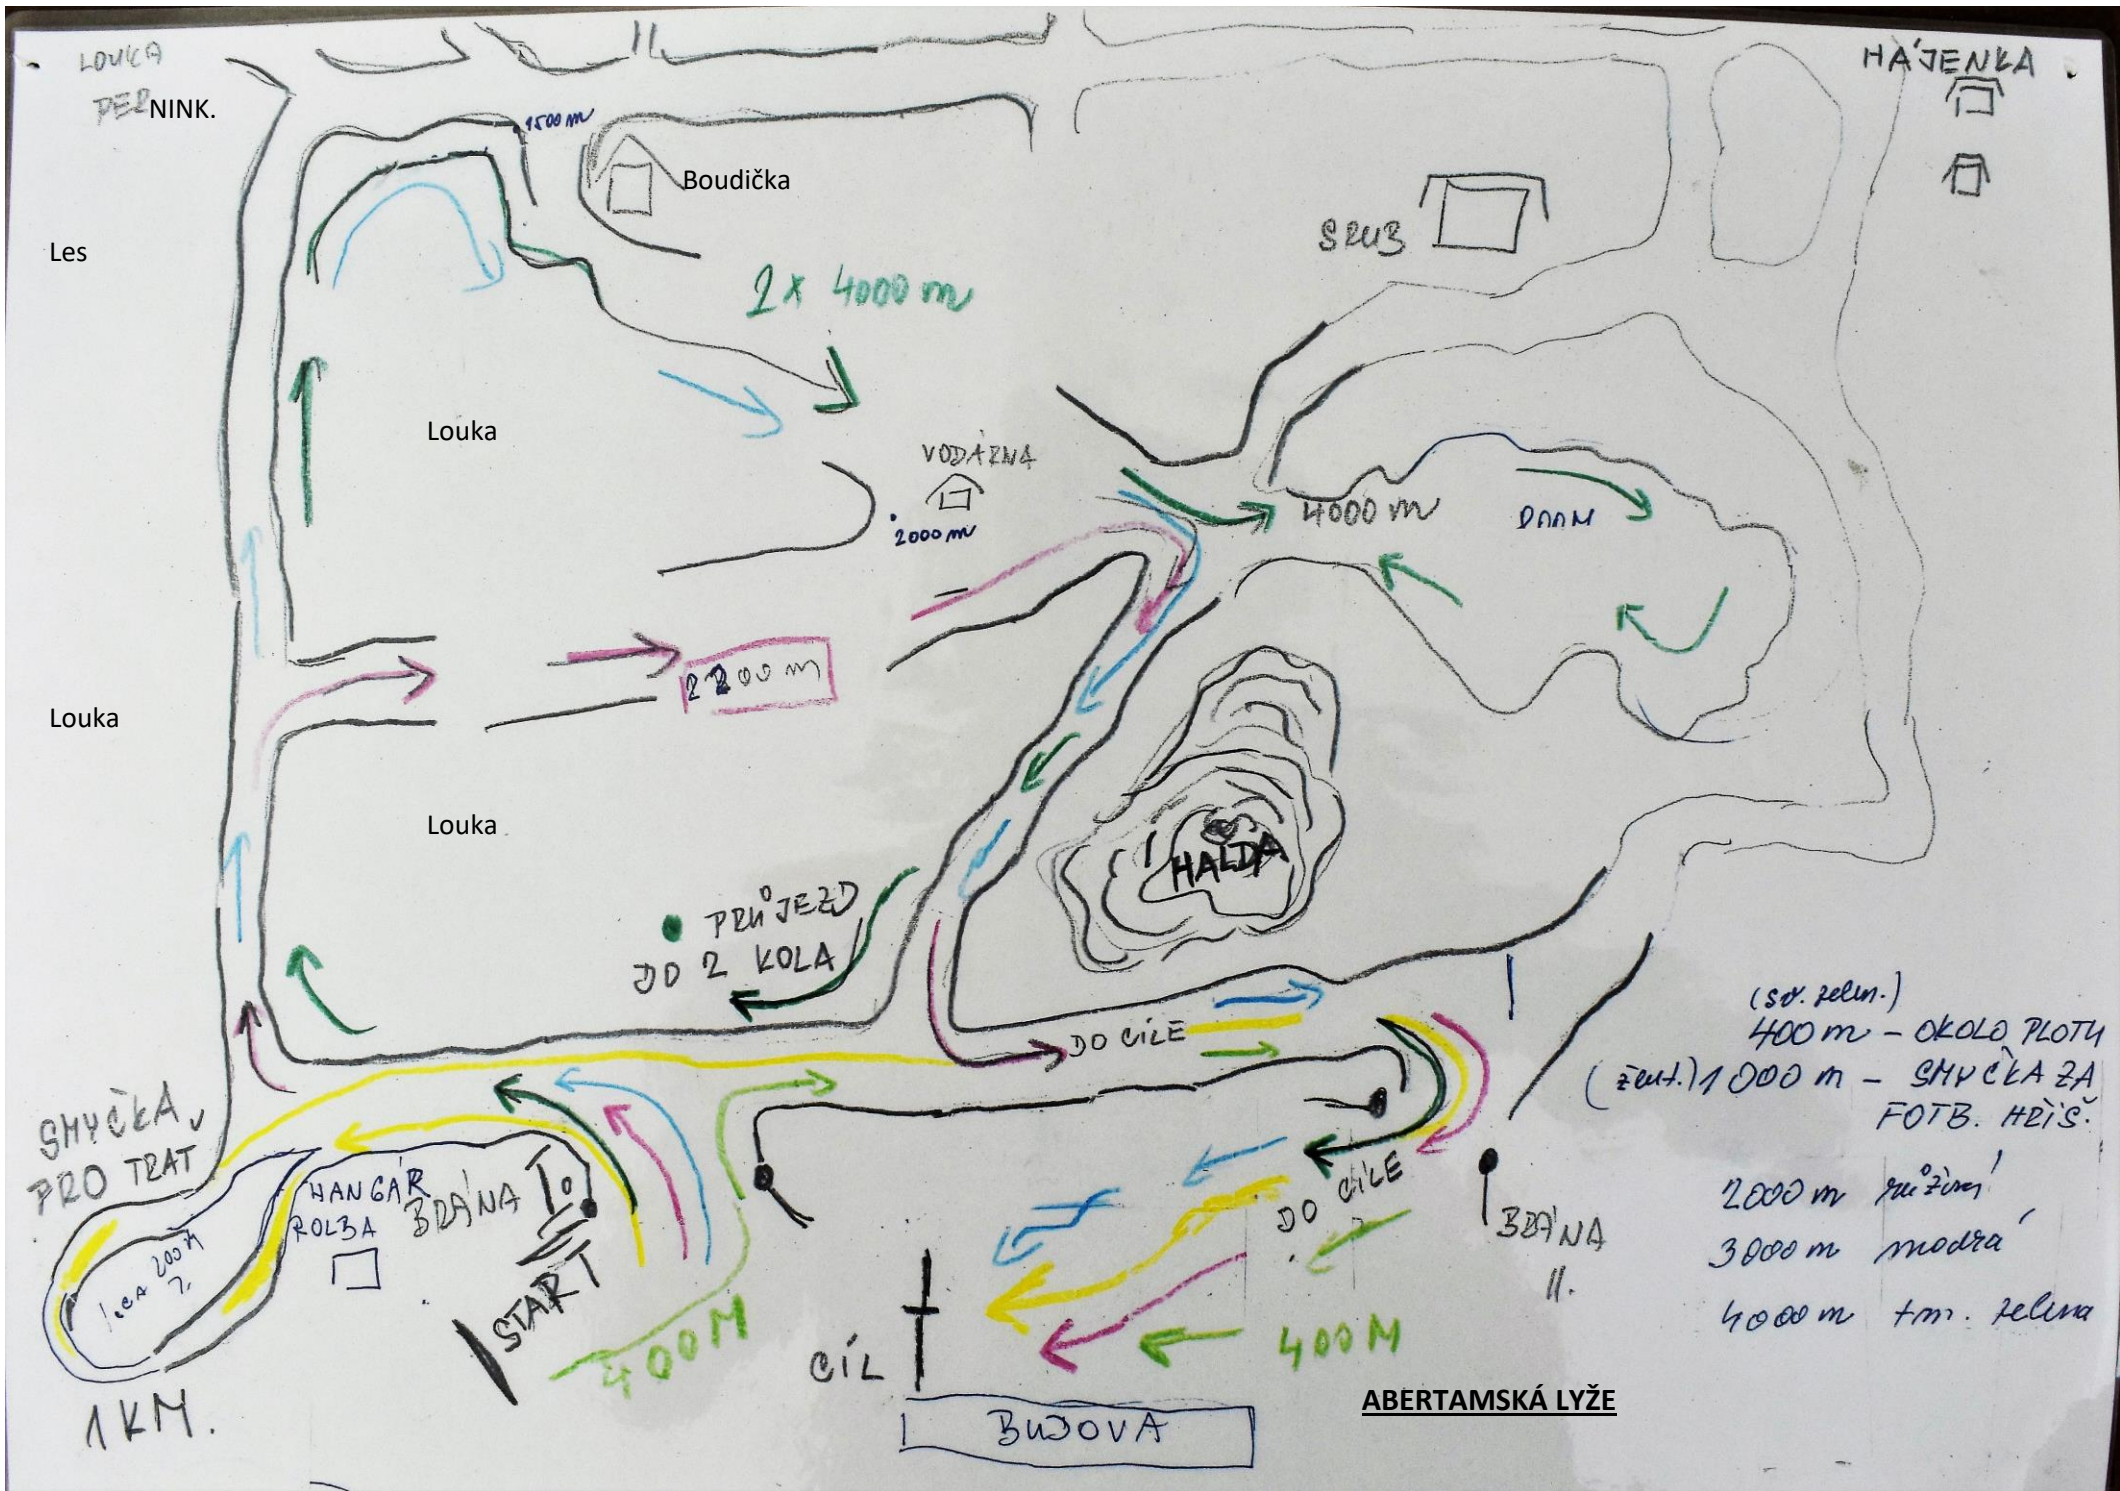 LOUKA
PERNINK.
HÁJENKA
1500 m
Boudička
Les
SRUB
2x 4000 m
Louka
VODÁRNA
2000 m
4000 m
2200 m
Louka
Louka
HALDA
PRŮJEZD
DO 2 KOLA
DO CÍLE
(sv. zelen.)
400 m - OKOLO PLOTU
(žlut.) 1000 m - SMYČKA ZA
FOTB. HŘIŠ.
2000 m růžová
3000 m modrá
4000 m tm. zelena
SMYČKA
PRO TRAT
HANGÁR
ROLBA
BRÁNA I.
START
400M
1 KM.
DO CÍLE
BRÁNA
II.
CÍL
400M
BUDOVA
ABERTAMSKÁ LYŽE